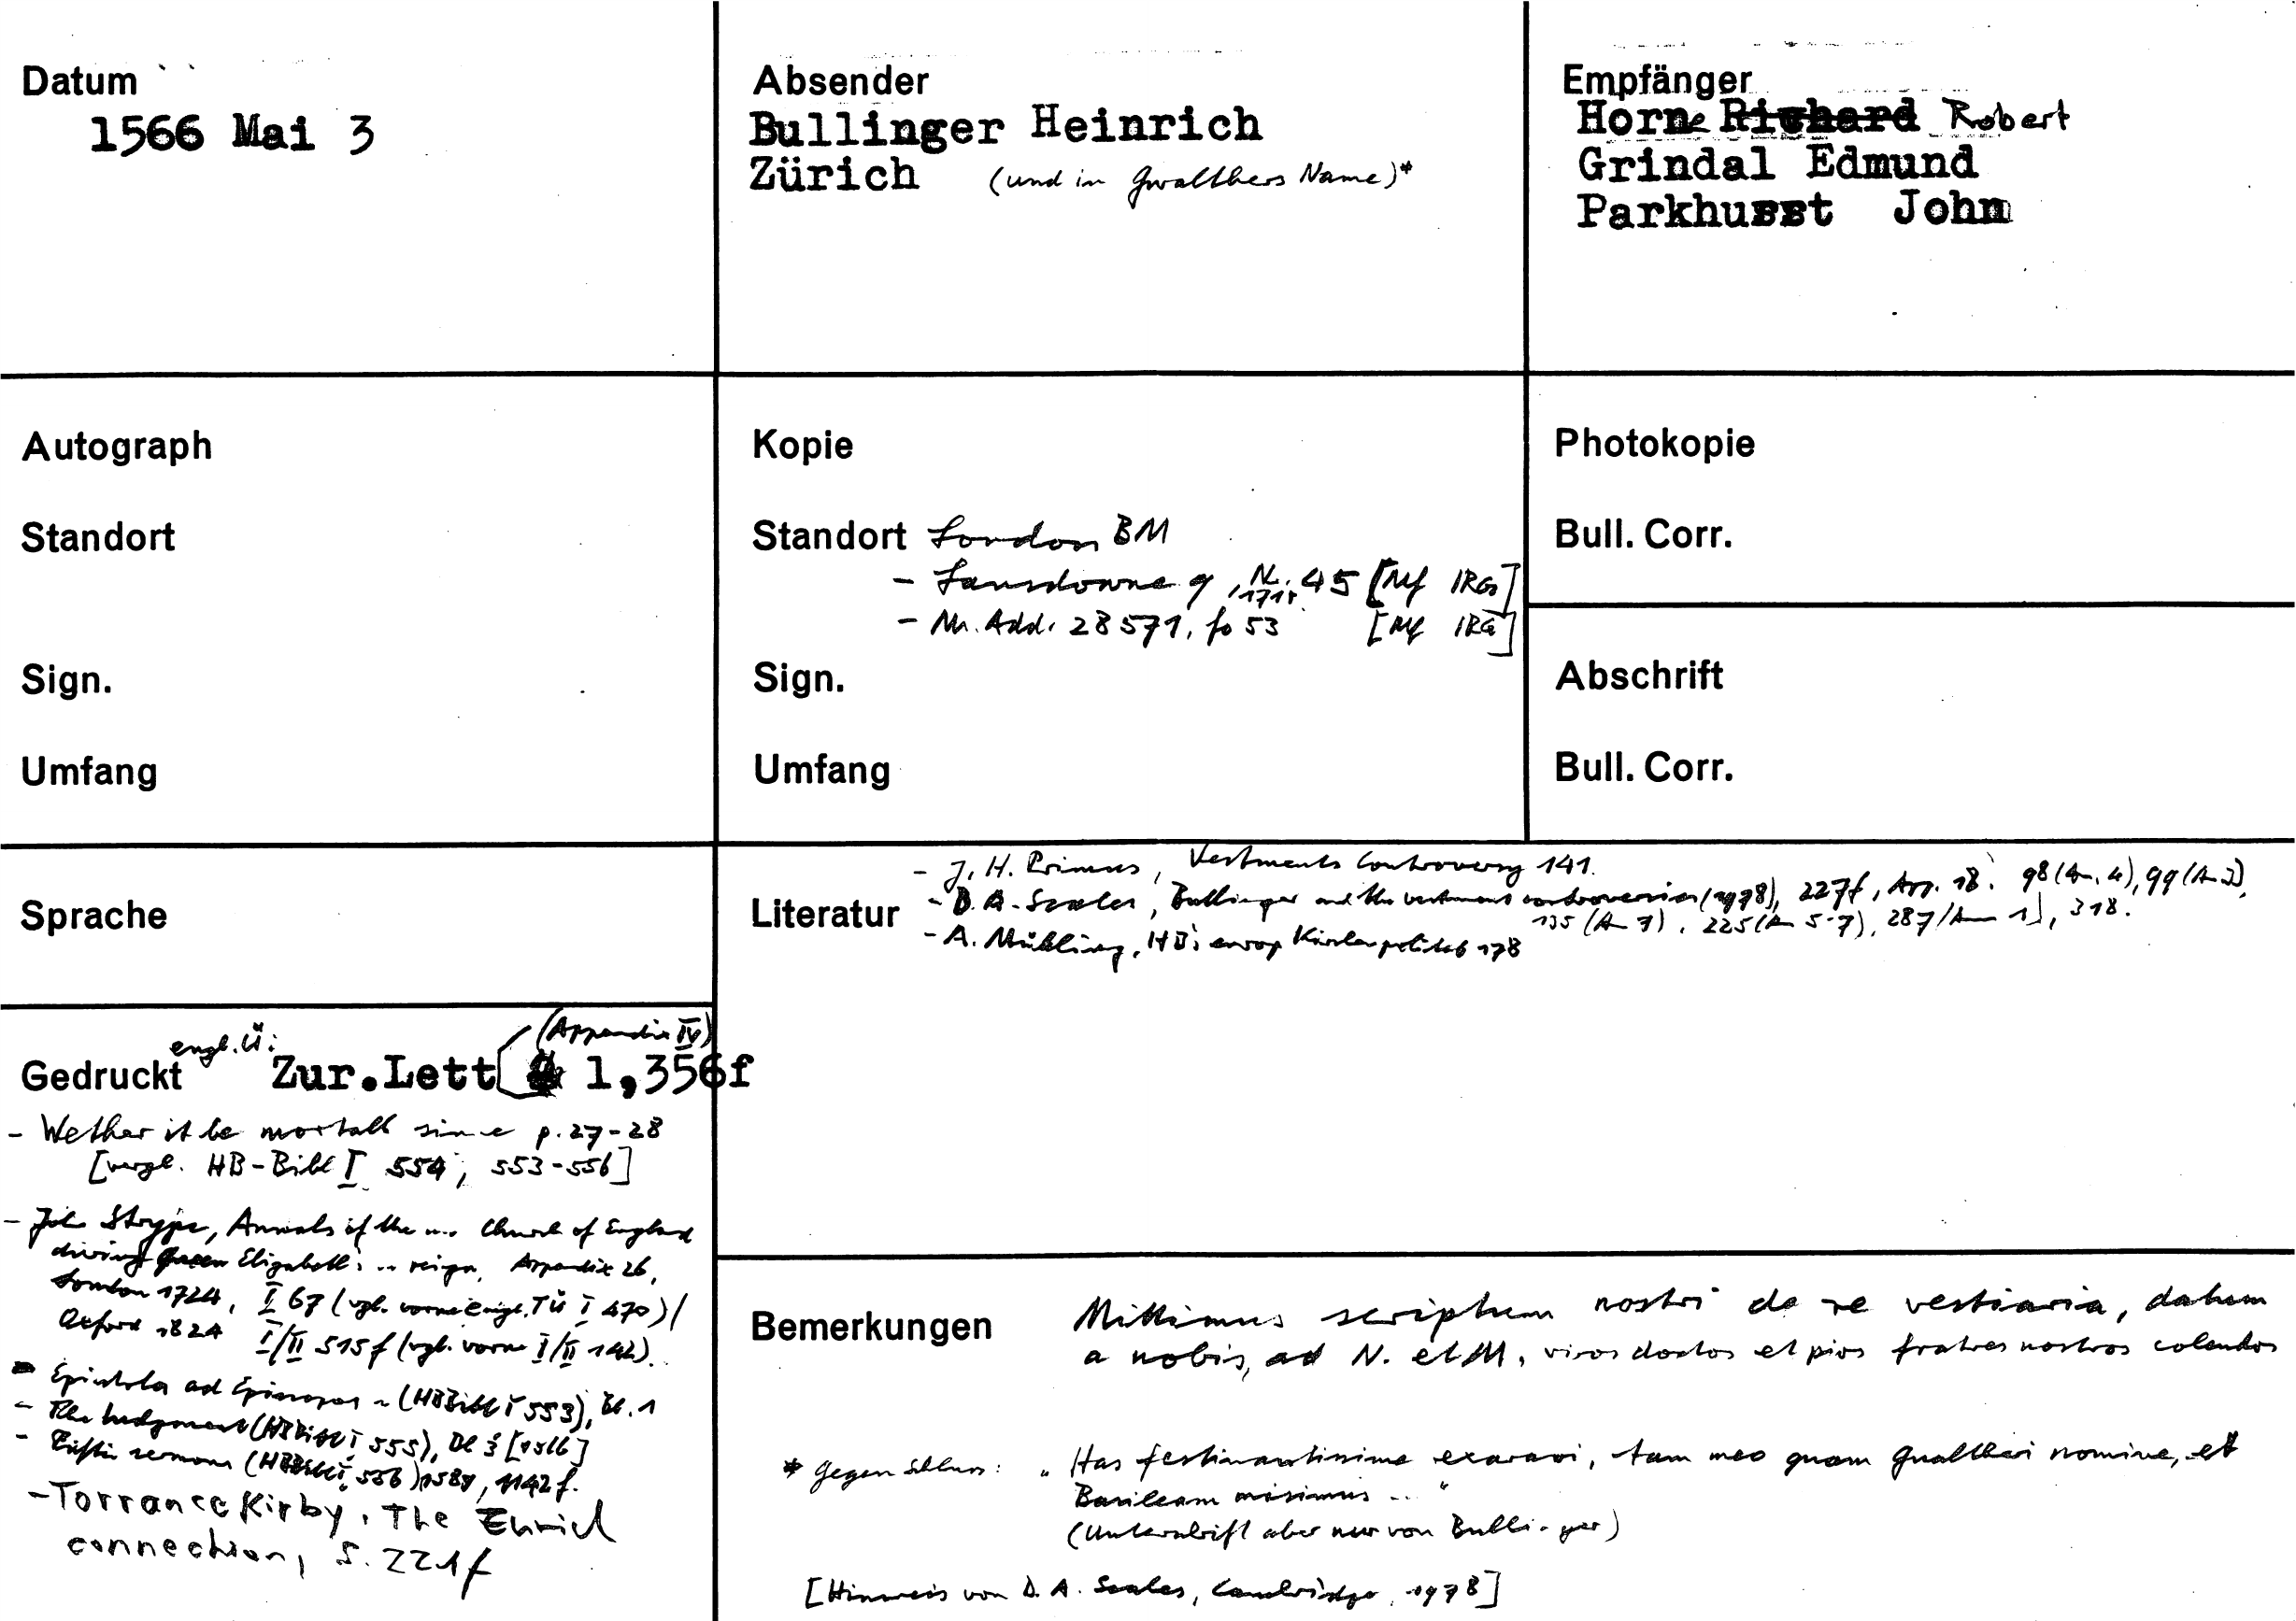 Datum
1566 Mai 3
Absender
Bullinger Heinrich
Zürich (und in Gwalthers Name)*
Empfänger
Horne Richard Robert
Grindal Edmund
Parkhurst John
Autograph
Standort
Sign.
Umfang
Kopie
Standort London BM
- Lansdowne 9, Nr. 45 [Mf IRG]
- Ms. Add. 28571, fo 53 [Mf IRG]
Sign.
Umfang
Photokopie
Bull. Corr.
Abschrift
Bull. Corr.
Sprache
Literatur
- J. H. Primus, Vestments Controversy 141.
- D. A. Scales, Bullinger and the vestment controversies (1978), 227f, App. 18. 98 (An. 4), 99
135 (A 7), 225 (A 5-7), 287 / Anm 1), 318.
- A. Mühling, HB's europ Kirchenpolitik 178
Gedruckt engl. Ü: Zur.Lett (Appendix IV) 1,356f
- Wether it be mortall sinne p. 27-28
[vergl. HB-Bibl I 554, 553-556]
- John Strype, Annals of the ... Church of England
during Queen Elizabeth's ... reign, Appendix 26,
London 1724, I 67 (vgl. vorne engl. TÜ I 470) /
Oxford 1824 I/II 515 f (vgl. vorne I/II 142).
- Epistola ad Episcopos (HBBibl I 553), Bl. 1
- The Judgement (HBBibl I 555), Bl
- Fiftie sermons (HBBibl I, 556) 1142 f.
- Torrance Kirby, The Zurich
connection, S. 221f
Bemerkungen
Mittimus scriptum nostri de re vestiaria, datum
a nobis, ad N. et M. viros doctos et pios fratres nostros colendos
* Gegen Schluss: „Has festinantissime exaravi, tam meo quam Gualtheri nomine, et
Basileam misimus ..."
(Unterschrift aber nur von Bullinger)
[Hinweis von D. A. Scales, Cambridge, 1978]